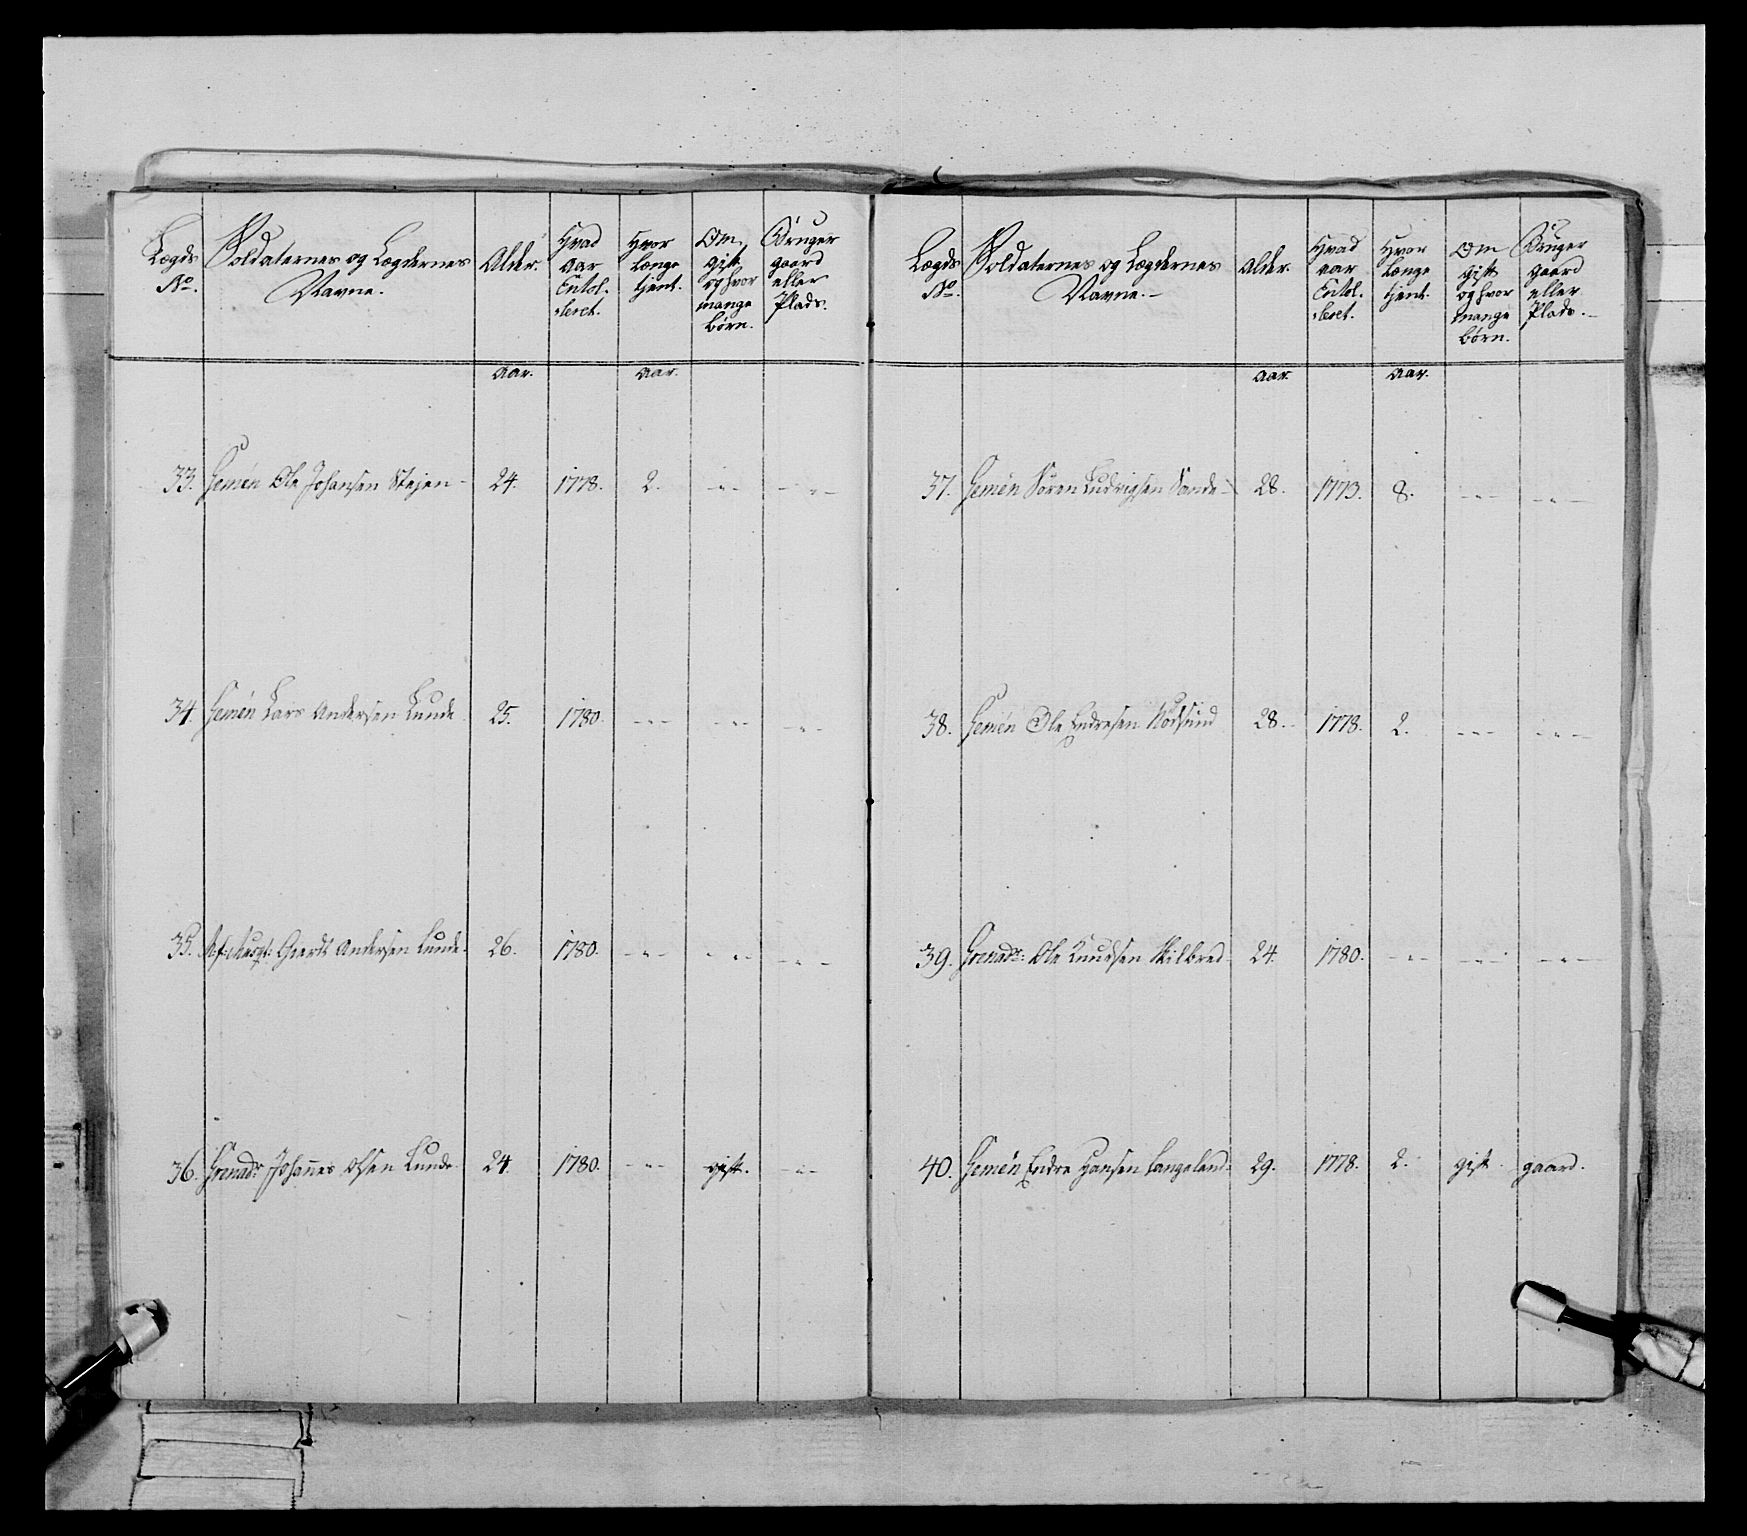 Lægds No. | Soldaternes og Lægdernes Navne. | Alder. | Hvad Aar Enrol- leret. | Hvor længe tjent. | Om gift og hvor mange børn. | Bruger gaard eller Plads.
Aar. | Aar.
33. Gemén Ole Johansen | 24. | 1778. | 2. | - - - | - - -
34. Gemén Lars Andersen Lunde | 25. | 1780. | - - - | - - - | - - -
35. Geerdt Andersen Lunde. | 26. | 1780. | - - - | - - - | - - -
36. Grenadr: Johannes Olsen Lunde | 24. | 1780. | - - - | gift. | - - -
Lægds No. | Soldaternes og Lægdernes Navne. | Alder. | Hvad aar Enrol- leret. | Hvor længe tjent. | Om gift og hvor mange børn. | Bruger gaard eller Plads.
Aar. | Aar.
37. Gemén Sören Ludvigsen Sande | 28. | 1773. | 8. | - - - | - - -
38. Gemén Ole Endresen | 28. | 1778. | 2. | - - - | - - -
39. Grenadr: Ole Knudsen Kilbred | 24. | 1780. | - - - | - - - | - - -
40. Gemén Endre Hansen Langeland. | 29. | 1778. | 2. | gift. | gaard.